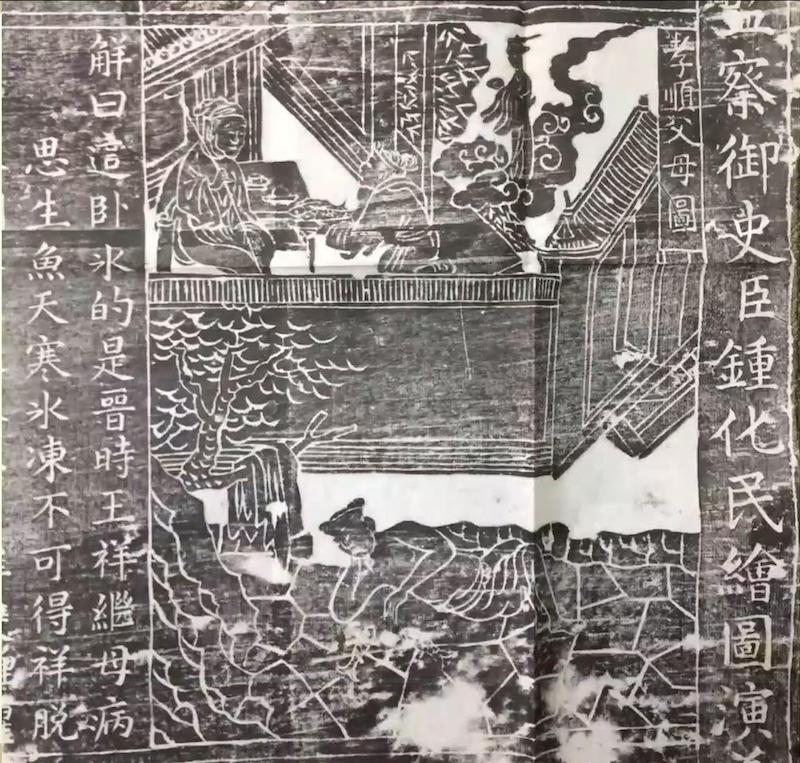 監察御史臣鍾化民繪圖演
孝順父母圖
解曰這卧冰的是晉時王祥繼母病
思生魚天寒冰凍不可得祥脱